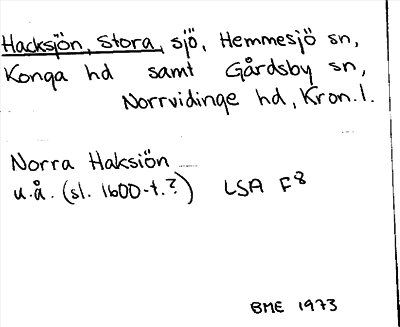 Hacksjön, Stora, sjö, Hemmesjö sn,
Konga hd samt Gårdsby sn,
Norrvidinge hd, Kron. l.
Norra Haksiön
u.å. (sl. 1600-t.?) LSA F8
BME 1973